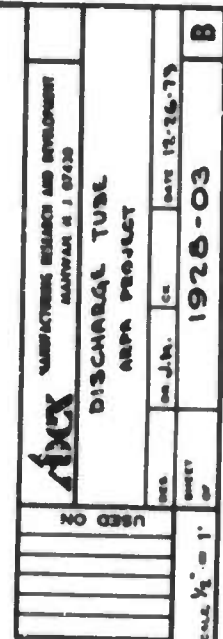 USED ON
MANUFACTURING RESEARCH AND DEVELOPMENT
MAHWAH N J 07430
DISCHARGE TUBE
ARPA PROJECT
DES
DR J.M.
CK
DATE 12-26-73
SHEET
OF
1928-03
B
1/2" = 1'